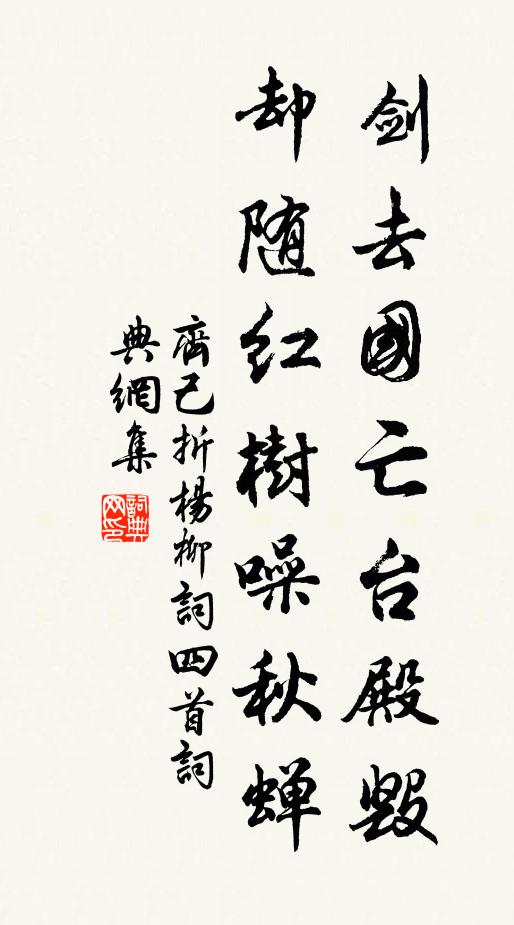 剑去國亡台殿毀
却随红樹噪秋蝉
齊己折楊柳詞四首詞
典網集
詞典網印